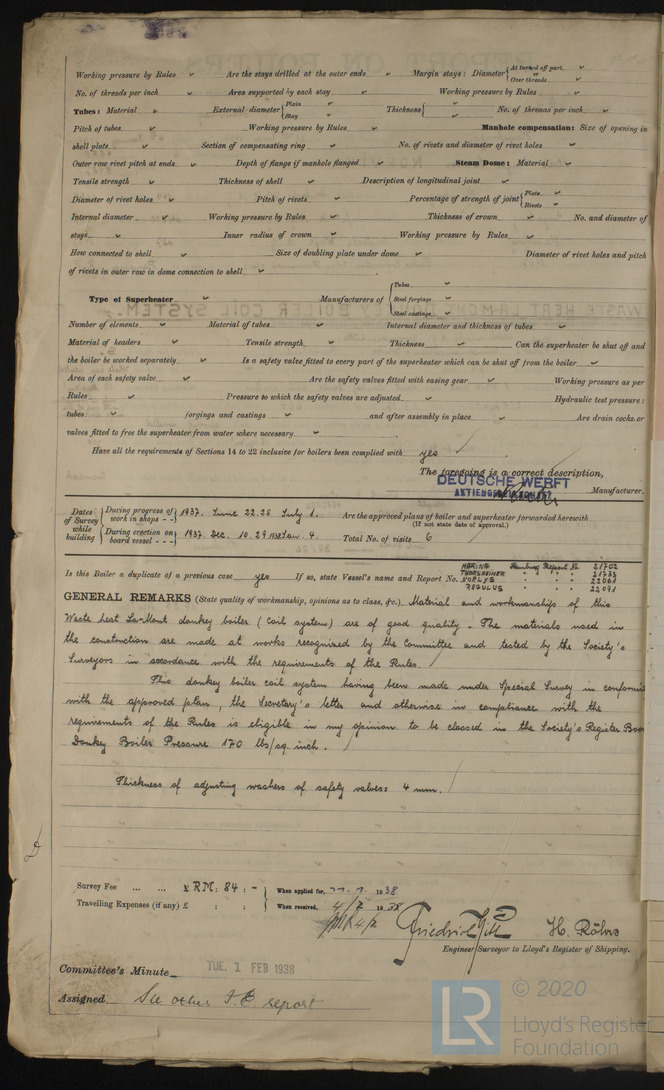 Working pressure by Rules ✓ Are the stays drilled at the outer ends ✓ Margin stays: Diameter { At turned off part. ✓ or Over threads ✓
No. of threads per inch ✓ Area supported by each stay ✓ Working pressure by Rules ✓
Tubes: Material ✓ External diameter { Plain ✓ Stay ✓ Thickness { ✓ No. of threads per inch ✓
Pitch of tubes ✓ Working pressure by Rules ✓ Manhole compensation: Size of opening in
shell plate ✓ Section of compensating ring ✓ No. of rivets and diameter of rivet holes ✓
Outer row rivet pitch at ends ✓ Depth of flange if manhole flanged ✓ Steam Dome: Material ✓
Tensile strength ✓ Thickness of shell ✓ Description of longitudinal joint ✓
Diameter of rivet holes ✓ Pitch of rivets ✓ Percentage of strength of joint { Plate ✓ Rivets ✓
Internal diameter ✓ Working pressure by Rules ✓ Thickness of crown ✓ No. and diameter of
stays ✓ Inner radius of crown ✓ Working pressure by Rules ✓
How connected to shell ✓ Size of doubling plate under dome ✓ Diameter of rivet holes and pitch
of rivets in outer row in dome connection to shell ✓
Type of Superheater ✓ Manufacturers of { Tubes ✓ Steel forgings ✓ Steel castings ✓
Number of elements ✓ Material of tubes ✓ Internal diameter and thickness of tubes ✓
Material of headers ✓ Tensile strength ✓ Thickness ✓ Can the superheater be shut off and
the boiler be worked separately ✓ Is a safety valve fitted to every part of the superheater which can be shut off from the boiler ✓
Area of each safety valve ✓ Are the safety valves fitted with easing gear ✓ Working pressure as per
Rules ✓ Pressure to which the safety valves are adjusted ✓ Hydraulic test pressure:
tubes ✓ forgings and castings ✓ and after assembly in place ✓ Are drain cocks or
valves fitted to free the superheater from water where necessary ✓
Have all the requirements of Sections 14 to 22 inclusive for boilers been complied with yes ✓
The foregoing is a correct description,
DEUTSCHE WERFT
AKTIENGESELLSCHAFT Manufacturer.
Dates of Survey while building { During progress of work in shops - - } 1937. June 22. 28 July 1. Are the approved plans of boiler and superheater forwarded herewith
(If not state date of approval.)
{ During erection on board vessel - - - } 1937. Dec. 10. 29 1938 Jan. 4. Total No. of visits 6
Is this Boiler a duplicate of a previous case yes If so, state Vessel's name and Report No.
MARINA Hamburg Report No 21702
THORSHEIMER " " " 21733
NORLYS " " " 22061
REGULUS " " " 22091
GENERAL REMARKS (State quality of workmanship, opinions as to class, &c.) Material and workmanship of this
Waste heat La-Mont donkey boiler (coil system) are of good quality. The materials used in
the construction are made at works recognized by the Committee and tested by the Society's
Surveyors in accordance with the requirements of the Rules.
This donkey boiler coil system having been made under Special Survey in conformi
with the approved plan, the Secretary's letter and otherwise in compliance with the
requirements of the Rules is eligible in my opinion to be classed in the Society's Register Boo
Donkey Boiler Pressure 170 lbs/sq. inch.
Thickness of adjusting washers of safety valves: 4 mm.
Survey Fee ... ... £ RM: 84 : - When applied for, 1938
Travelling Expenses (if any) £ : : When received, 4/2 1938
Friedrich H. Röhrs
Engineer Surveyor to Lloyd's Register of Shipping.
Committee's Minute TUE. 1 FEB 1938
Assigned See other F.E. report
LR © 2020
Lloyd's Register
Foundation